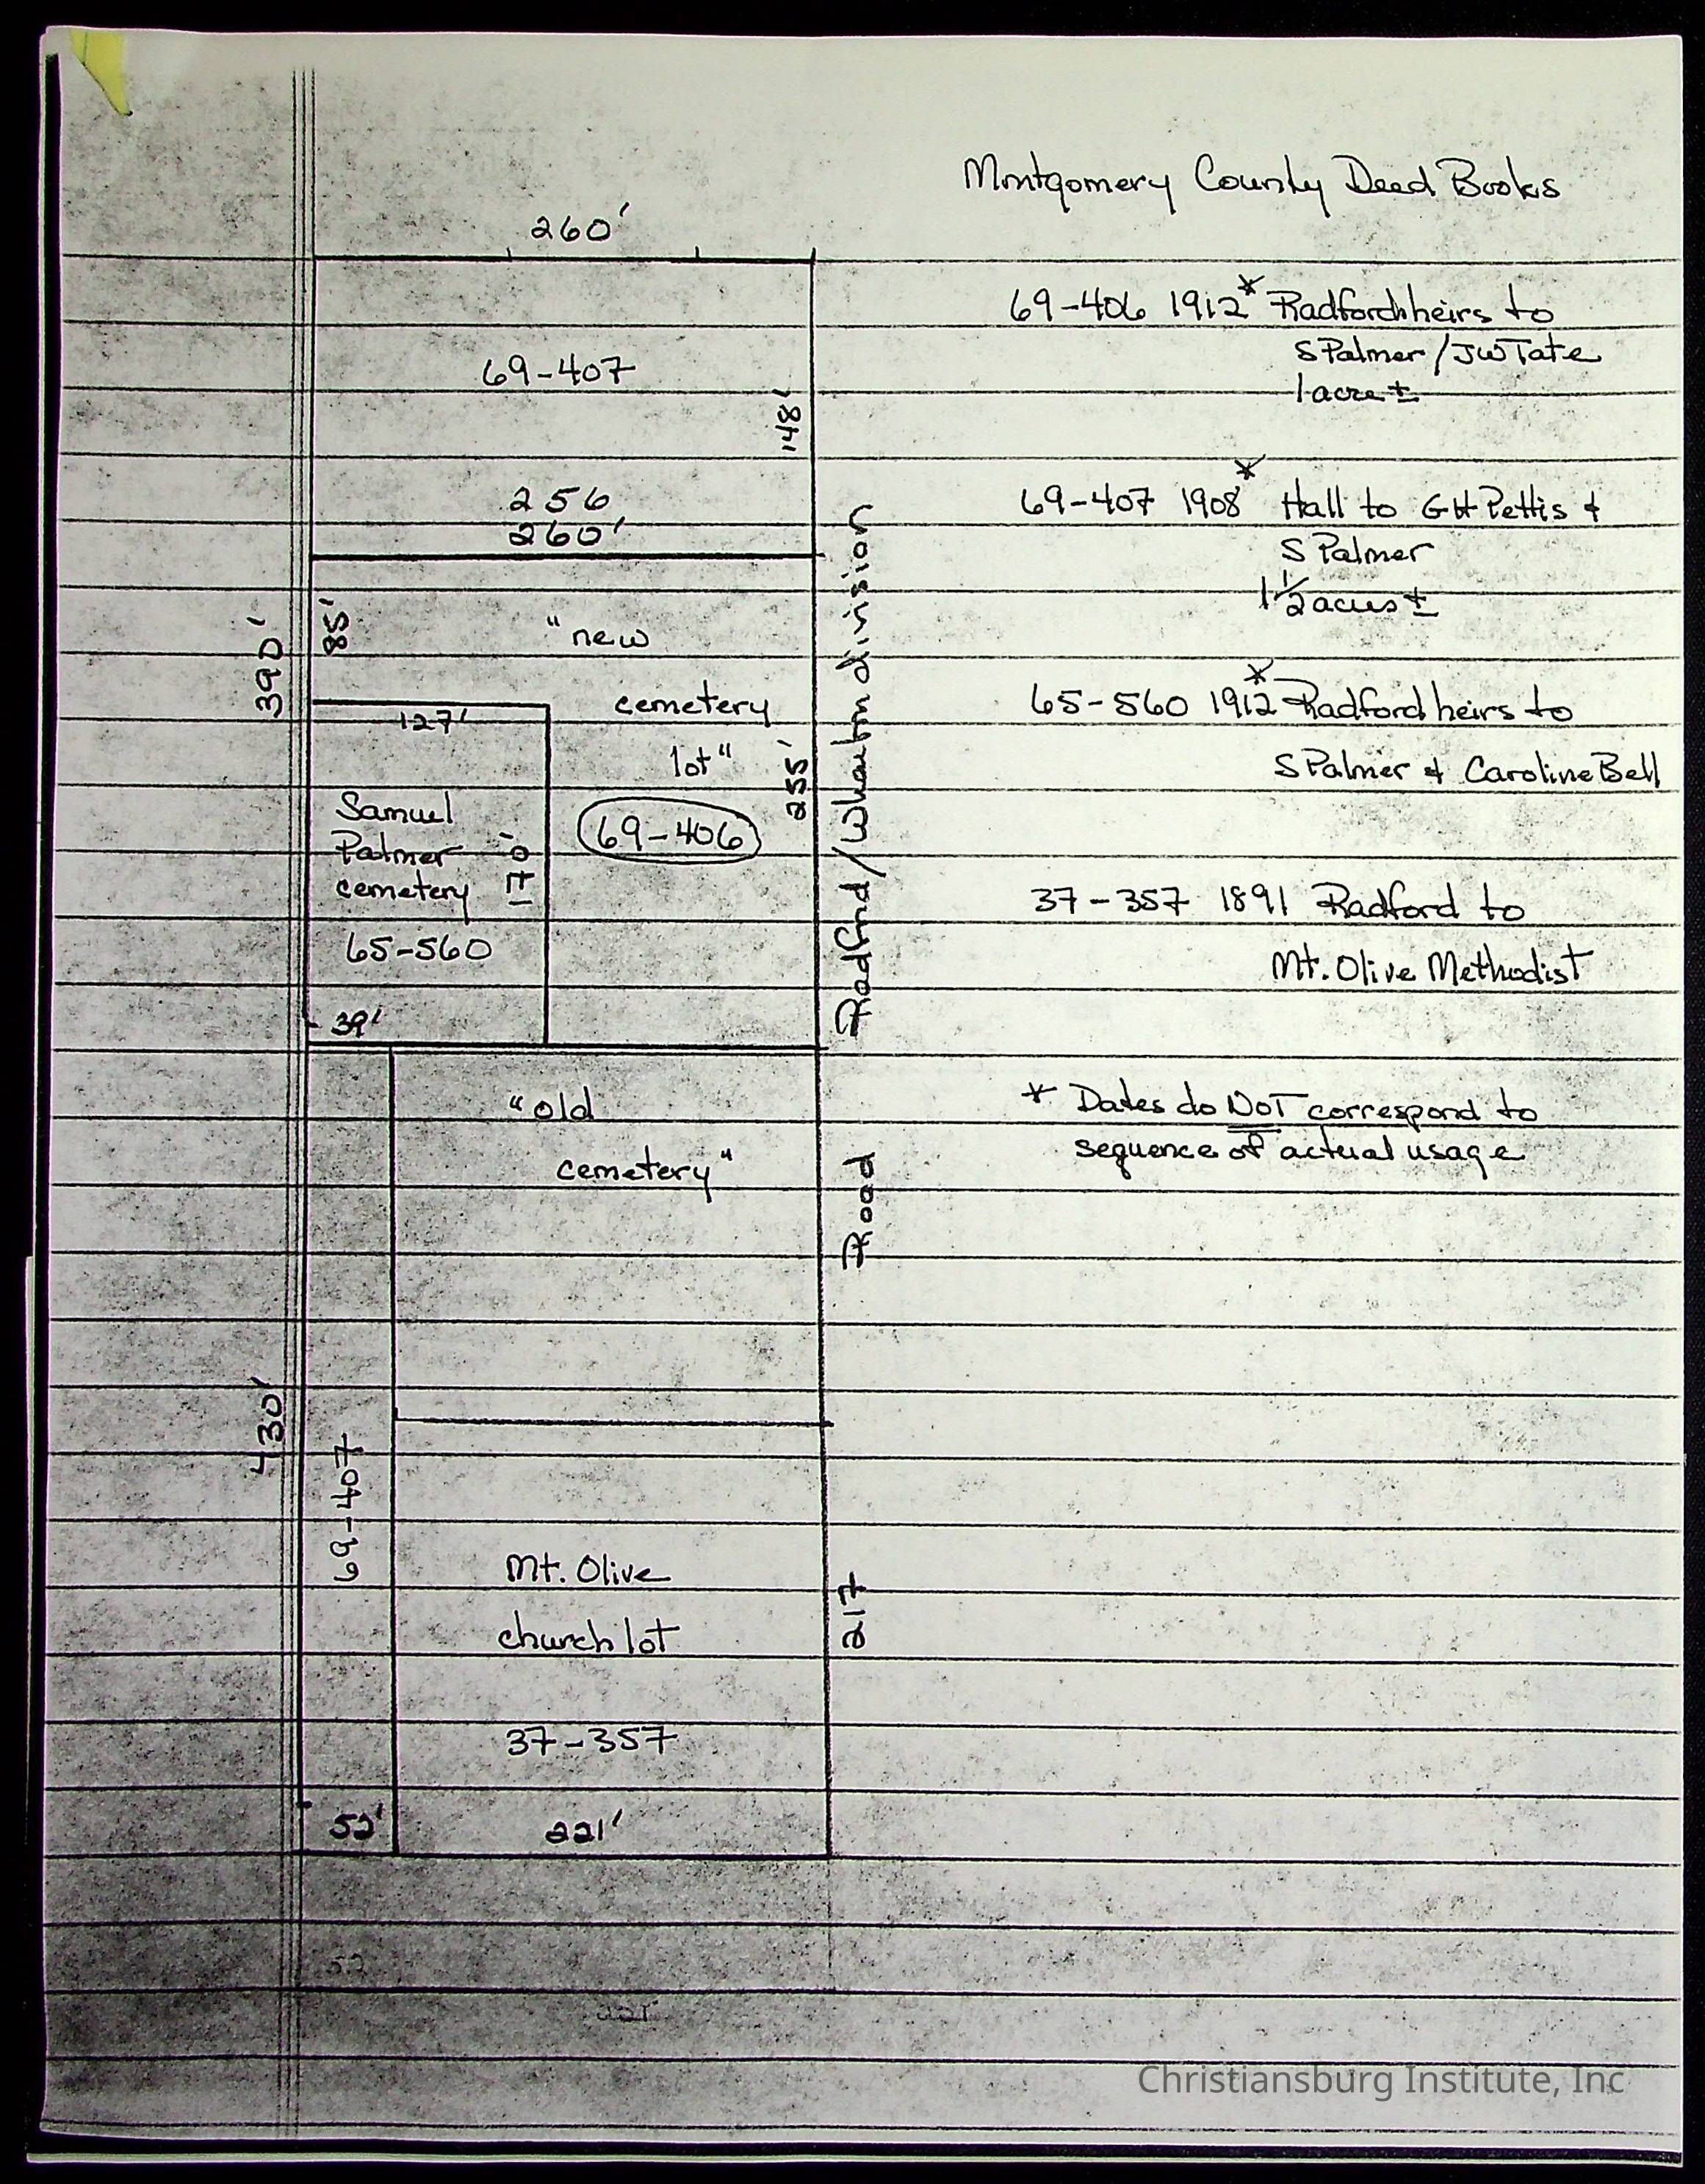 Montgomery County Deed Books
260'
69-407
148'
256
260'
390'
85'
"new
cemetery
lot"
127'
255'
Samuel
Palmer
cemetery
170'
69-406
65-560
39'
Radford/Wharton division
"old
cemetery"
Road
430'
69-407
Mt. Olive
church lot
217
37-357
52'
221'
69-406 1912* Radford heirs to
S Palmer/JW Tate
1 acre ±
69-407 1908* Hall to GH Pettis &
S Palmer
1 1/2 acres ±
65-560 1912* Radford heirs to
S Palmer & Caroline Bell
37-357 1891 Radford to
Mt. Olive Methodist
* Dates do NOT correspond to
sequence of actual usage
52
221
Christiansburg Institute, Inc